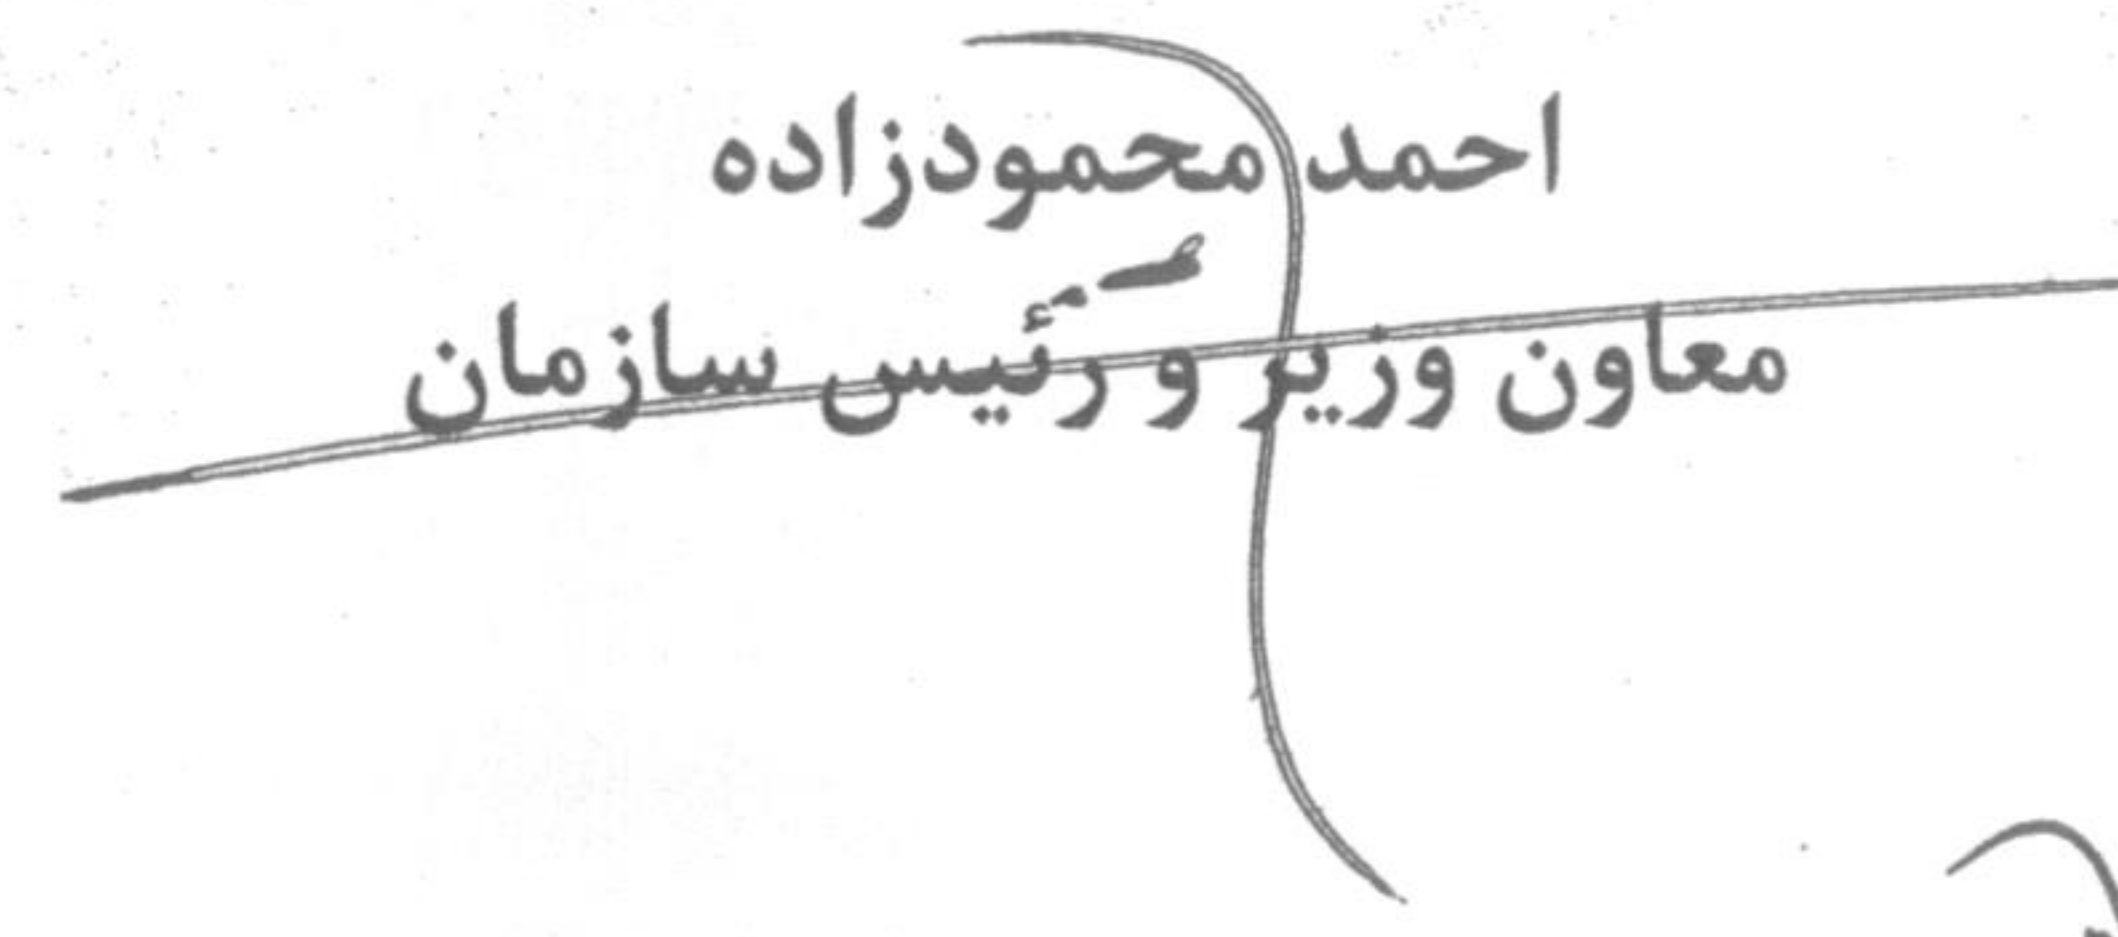 احمد محمودزاده
معاون وزیر و رئیس سازمان